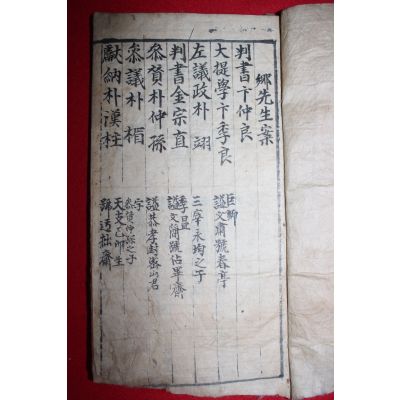 鄕先生案
判書卞仲良
大提學卞季良
巨卿
諡文肅號春亭
左議政朴翊
三宰永均之子
判書金宗直
季昷
諡文簡號佔畢齋
叅贊朴仲孫
諡恭孝封密山君
叅議朴楣
字
叅贊仲孫之子
獻納朴漢柱
天支乙卯生
號迃拙齋